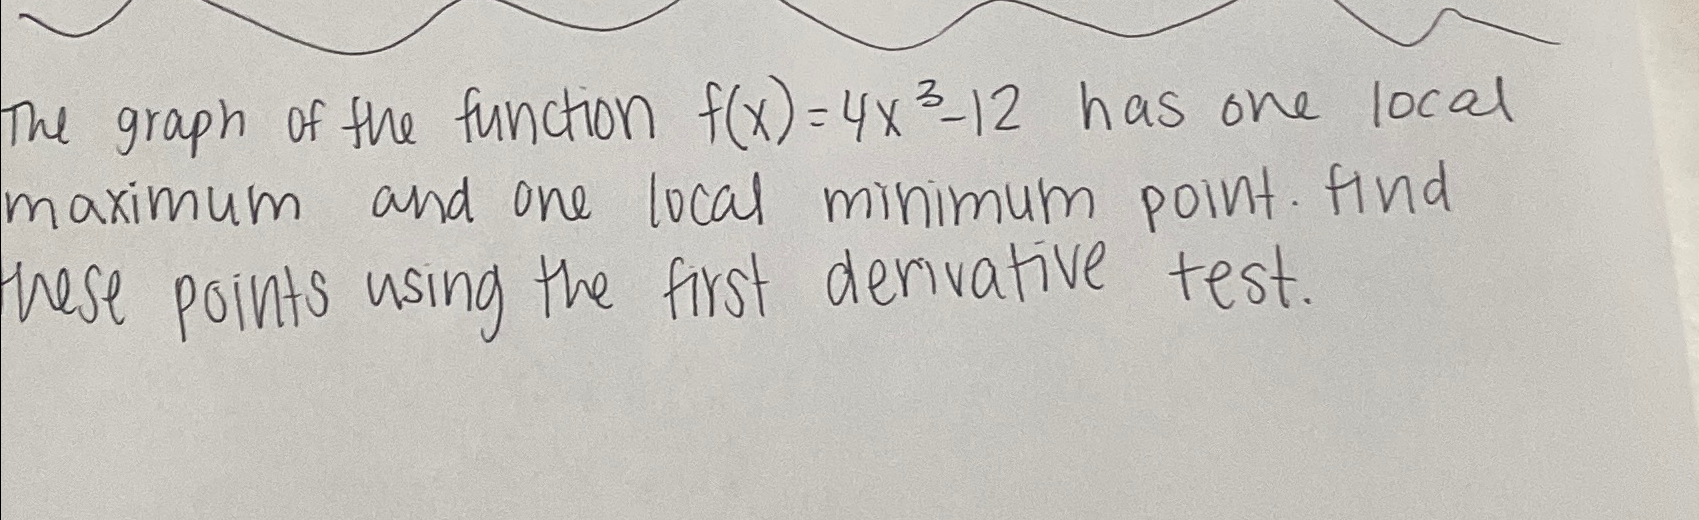 The graph of the function f(x)=4x³-12 has one local
maximum and one local minimum point. find
these points using the first derivative test.